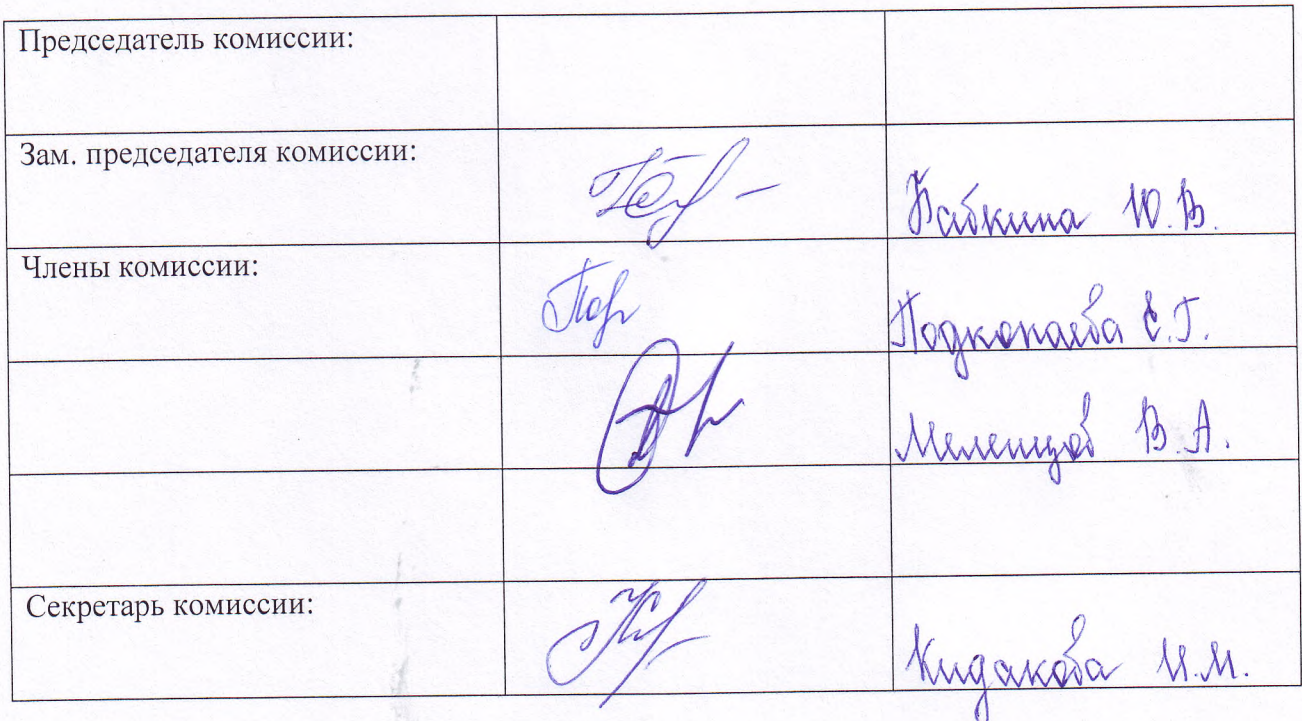 Председатель комиссии:
Зам. председателя комиссии:
Бабкина Ю.В.
Члены комиссии:
Подкопаева Е.Г.
Мелещов В.А.
Секретарь комиссии:
Кидакова И.М.